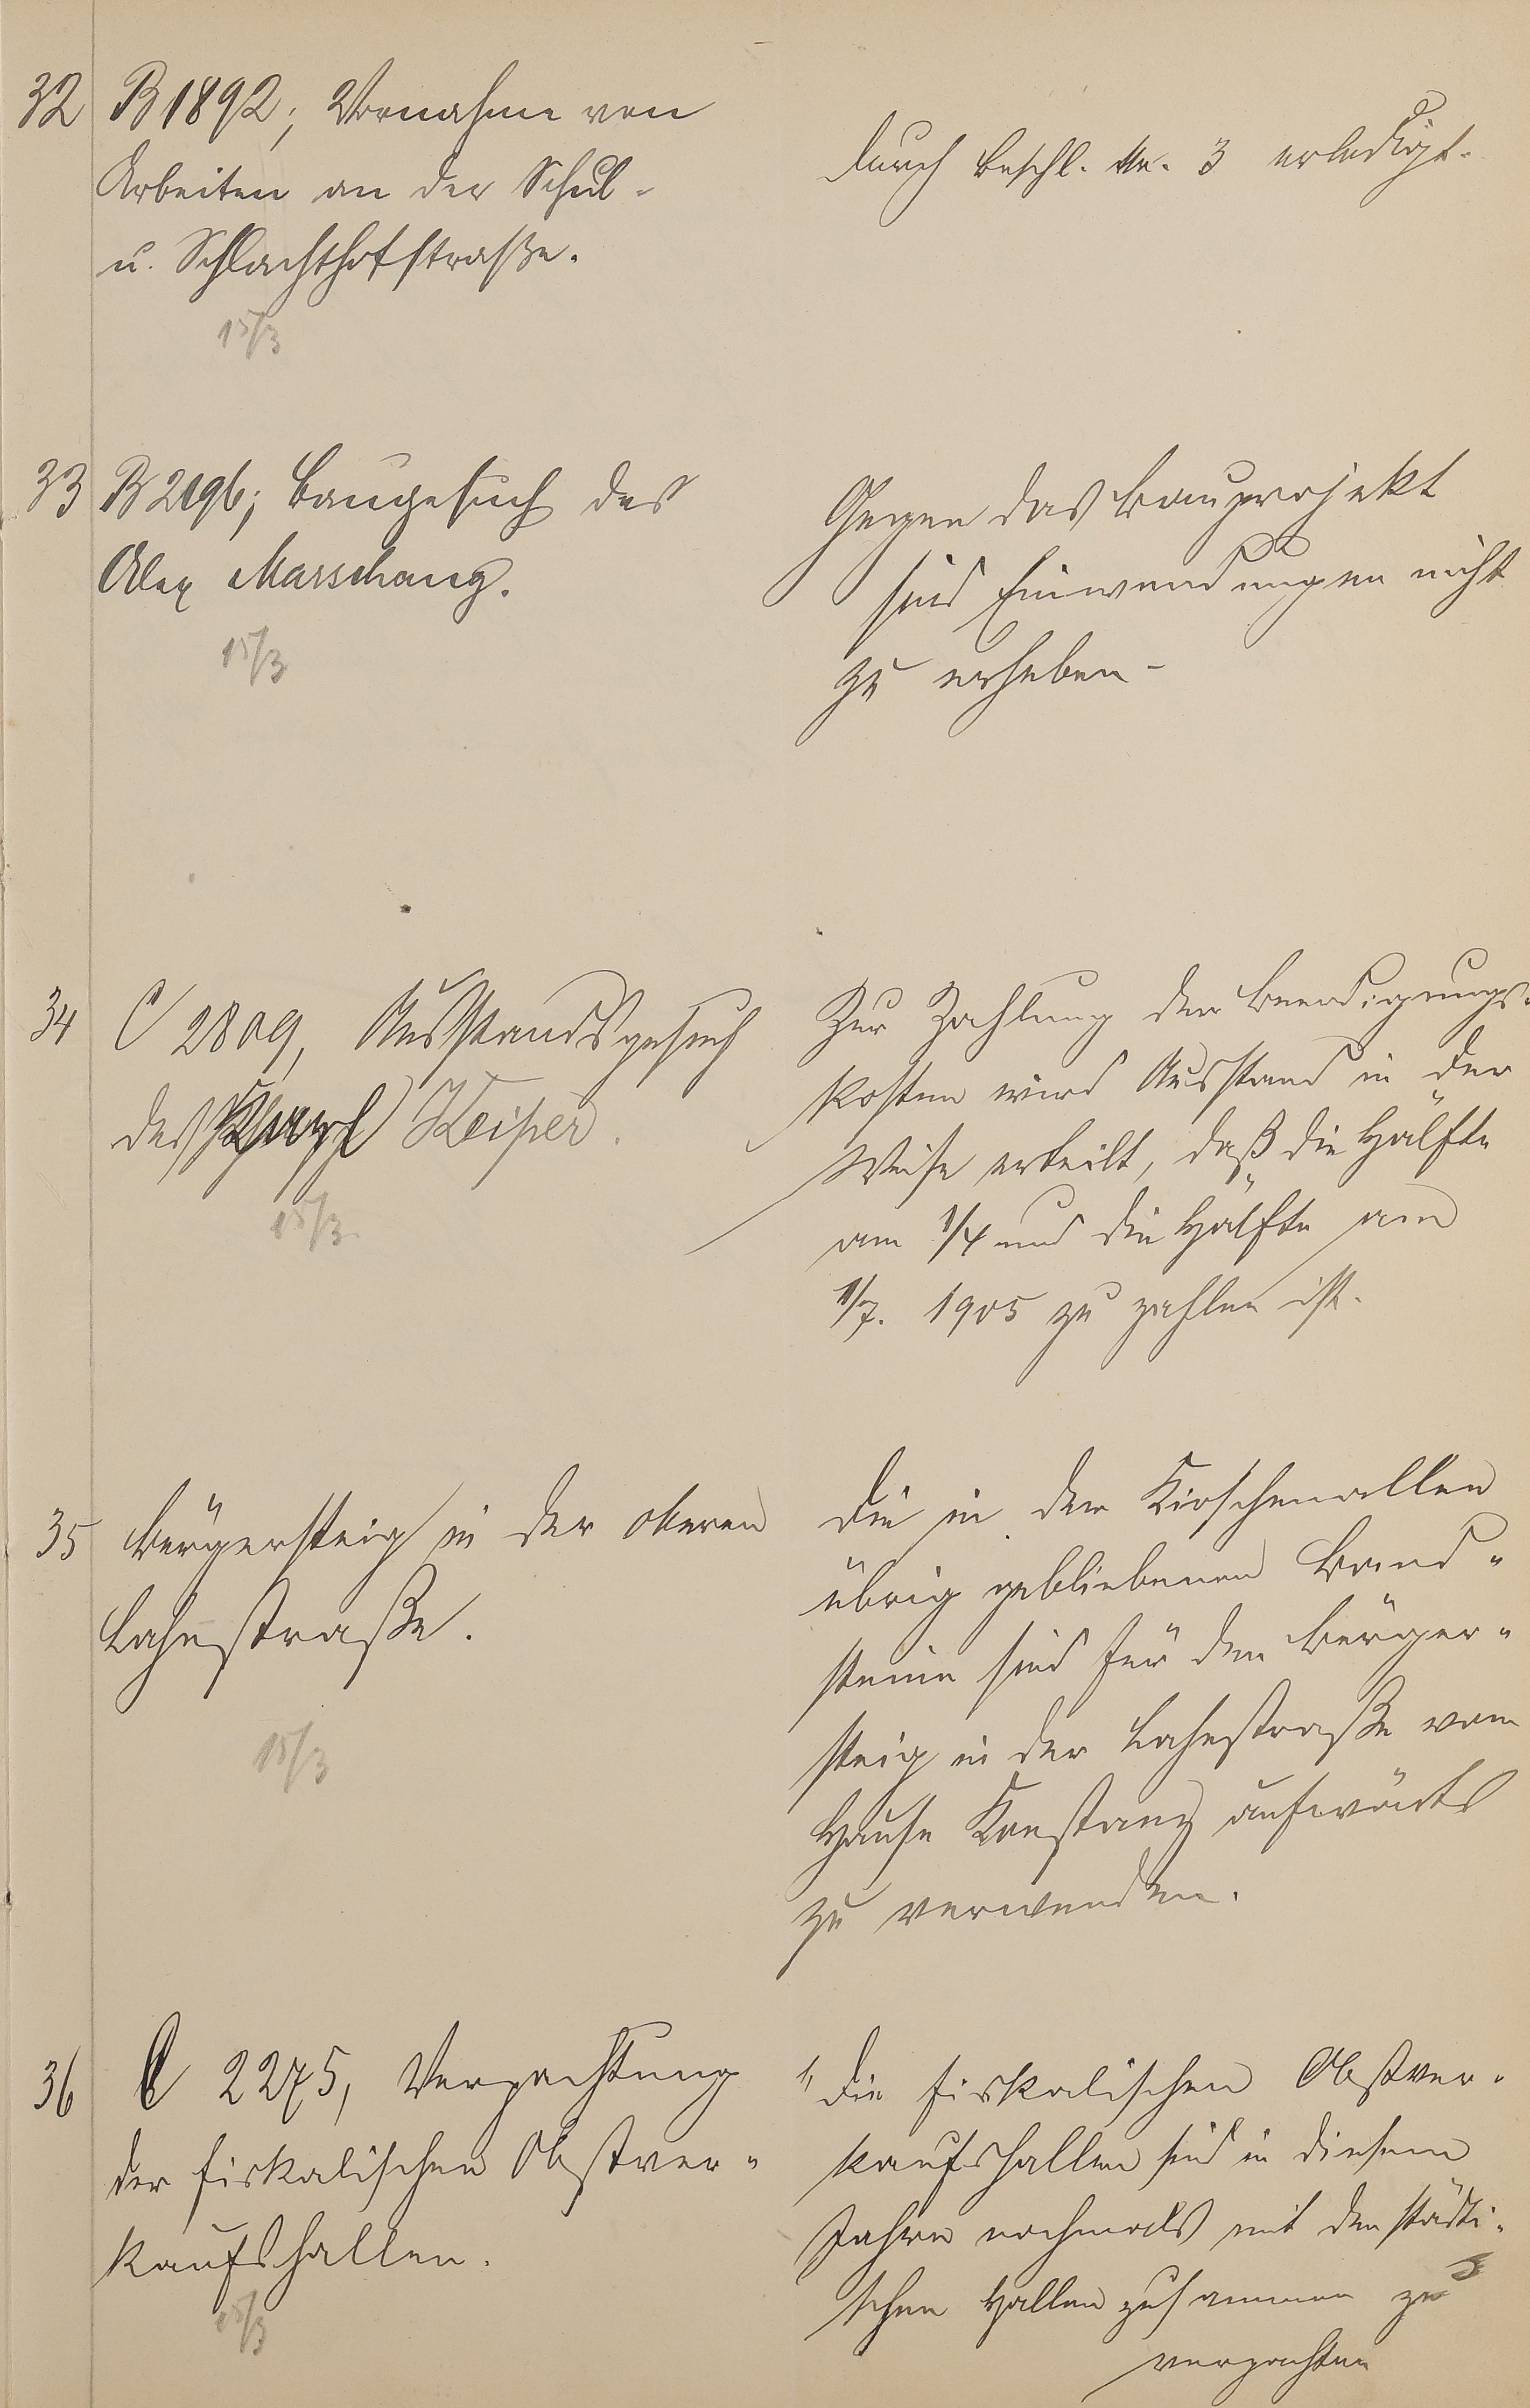 32 B 1892; Vornahme von
Arbeiten an der Schul-
u. Schlachthofstraße.
15/3
Durch Beschl. Nr. 3 erledigt.
33 B 2196; Baugesuch des
Alex Marschang.
15/3
Gegen das Bauprojekt
sind Einwendungen nicht
zu erheben-
34 C 2809, Ausstandsgesuch
des Keiper.
15/3
Zur Zahlung der Beerdigungs-
kosten wird Ausstand in der
Weise erteilt, daß die Hälfte
am 1/4 und die Hälfte am
1/7. 1905 zu zahlen ist.
35 Bürgersteig in der oberen
Lahnstraße.
15/3
Die in der Kirschenallee
übrig gebliebenen Band-
steine sind für den Bürger-
steig in der Lahnstraße vom
Hause Konstanz aufwärts
zu verwenden.
36 C 2275, Verpachtung
der fiskalischen Obstver-
kaufshallen.
15/3
1, Die fiskalischen Obstver-
kaufshallen sind in diesem
Jahre nochmals mit den städti-
schen Hallen zusammen zu
verpachten